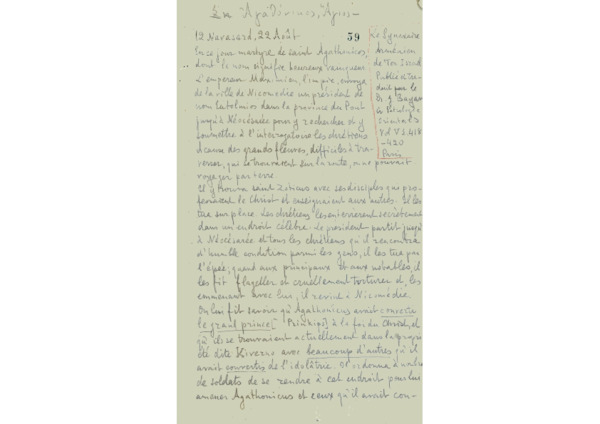 12 Navasard, 22 Août
59
En ce jour martyre de saint Agathonicos,
dont le nom signifie heureux vainqueur.
L'empereur Maximien, l'impie, envoya
de la ville de Nicomédie un président de
nom dans la province du Pont
jusqu'à Néocésarée pour y rechercher et y
soumettre à l'interrogatoire les chrétiens
à cause des grands fleuves, difficiles à tra-
verser, qui se trouvaient sur la route, on ne pouvait
voyager par terre.
Il y trouva saint Zoticus avec ses disciples qui pro-
fessaient le Christ et enseignaient aux autres. Il les
tua sur place. Les chrétiens les enterrèrent secrètement
dans un endroit célèbre. Le président partit jusqu'
à Néocésarée et tous les chrétiens qu'il rencontra
d'humble condition parmi les gens, il les tua par
l'épée; quant aux principaux et aux notables, il
les fit flageller et cruellement torturer et, les
emmenant avec lui, il revint à Nicomédie.
On lui fit savoir qu'Agathonicus avait converti
le grand prince [ à la foi du Christ, et
qu'ils se trouvaient actuellement dans la propri-
été dite avec beaucoup d'autres qu'il
avait convertis de l'idolâtrie. Il ordonna à
de soldats de se rendre à cet endroit pour lui
amener Agathonicus et ceux qu'il avait con-
Le Synaxaire
Arménien
de Ter Israel
Publié et tra-
duit par le
Dr G. Bayan
Patrologia
Orientalis
Vol V
418
-420
Paris